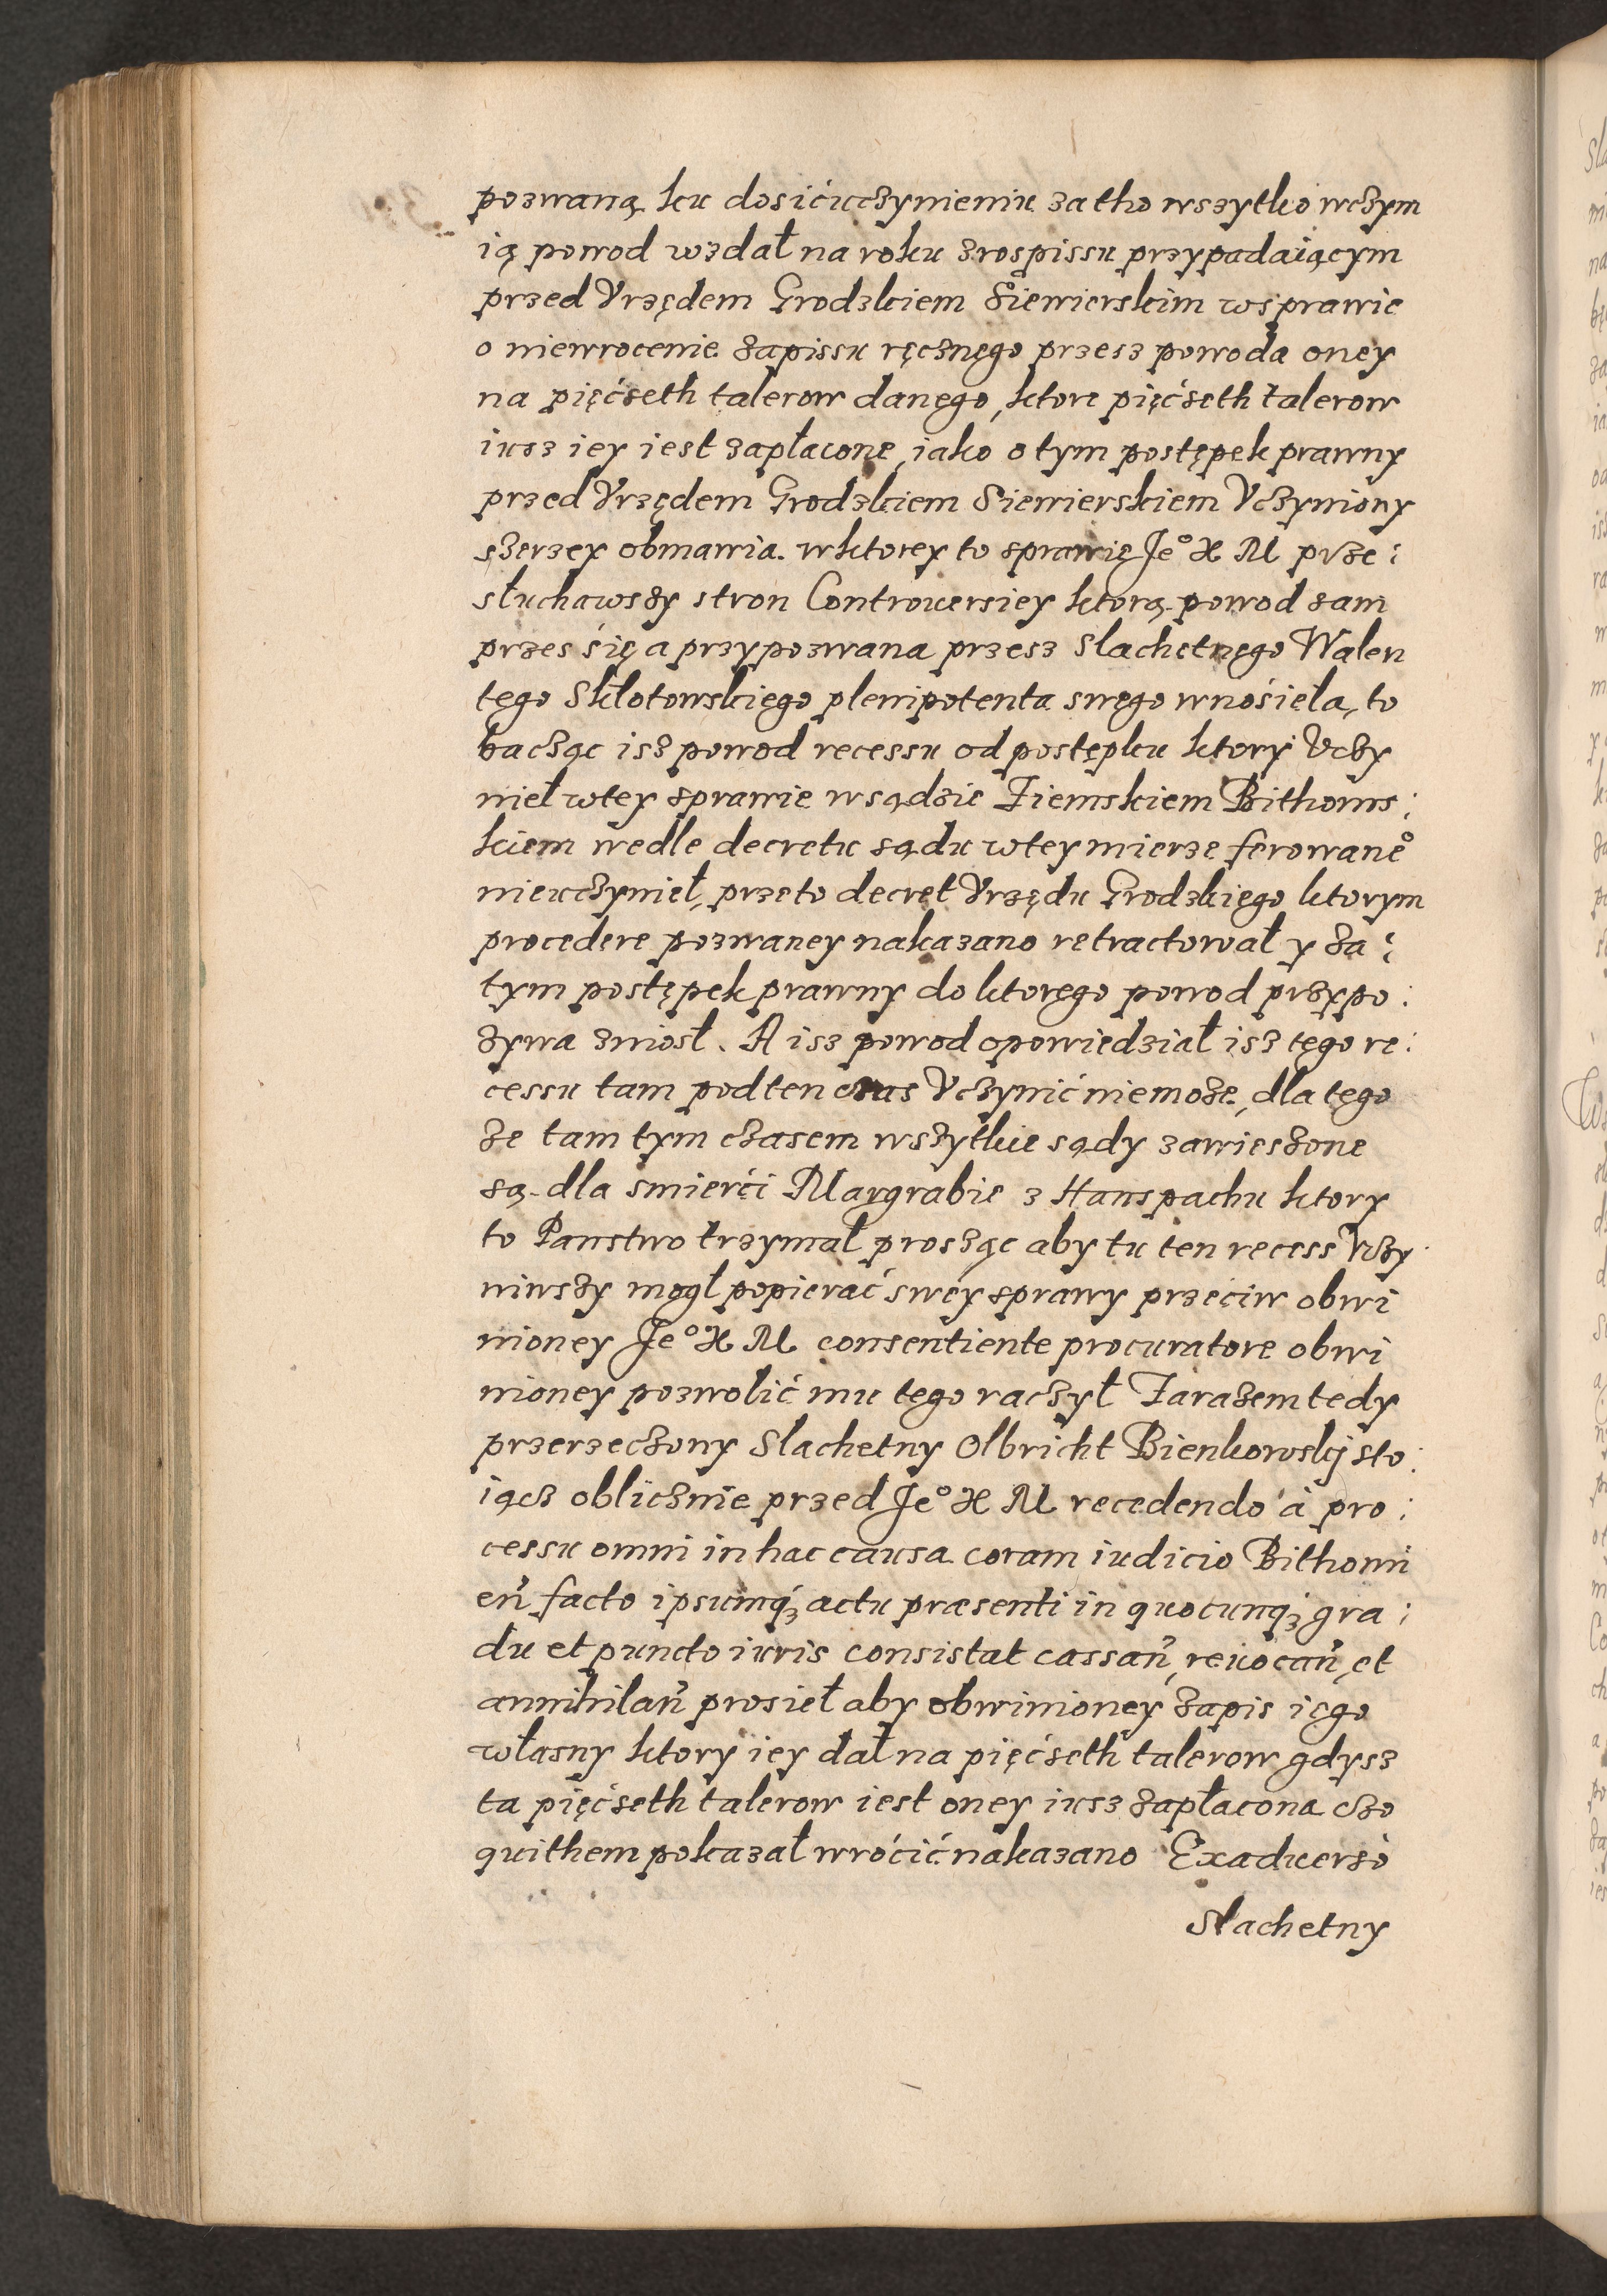 pozwaną ku dosićuczynieniu zatho wszytko wczym
ią powod wzdał na roku zrospissu przypadaiącym
przed Vrzędem Grodzkiem Siewierskim wsprawie
o niewrocenie zapissu ręcznęgo przesz powoda oney
na pięćseth talerow danego, ktore pięćseth talerow
iusz iey iest zapłacone, iako o tym postępek prawny
przed Vrzędem Grodzkiem Siewierskiem Vczyniony
szerzey obmawia. wktorey to sprawię Je° X M prze:
słuchawszy stron Controuersiey ktorą powod sam
przes się a przypozwana przesz Slachetnego Walen
tęgo Skłotowskięgo plenipotenta swęgo wnośieła, to
bacząc isz powod recessu od postępku ktory Vczy
nieł wtey sprawie wsądzie Ziemskiem Bithoms:
kiem wedle decretu sądu wtey mierze ferowane°
nieuczynieł, przeto decret Vrzędu Grodzkięgo ktorym
procedere pozwaney nakazano retractował y za:
tym postępek prawny do ktoręgo powod przypo:
zywa zniosł. A isz powod opowiedział isz tęgo re:
cessu tam podten czas Vczynić niemoze, dla tęgo
ze tam tym czasem wszytkie sądy zawieszone
są dla smierći Margrabie z Hanspachu ktory
to Panstwo trzymał prosząc aby tu ten recess Vczy
niwszy mogł popierać swey sprawy przećiw obwi
nioney Je° X M consentiente procuratore obwi
nioney pozwolić mu tego raczył Zarazem tedy
przerzeczony Slachetny Olbricht Bienkowskij sto:
iącz oblicznie przed Je° X M recedendo à pro:
cessu omni in hac causa coram iudicio Bithomi
eñ facto ipsumq́ꝫ actu præsenti in quocunqꝫ gra:
du et puncto iuris consistat cassañ, reuocañ, et
annihilañ prosieł aby obwinioney zapis iego
własny ktory iey dał na pięćseth talerow gdysz
ta pięćseth talerow iest oney iusz zapłacona czo
quithem pokazał wróćić nakazano Exaduersò
Slachetny